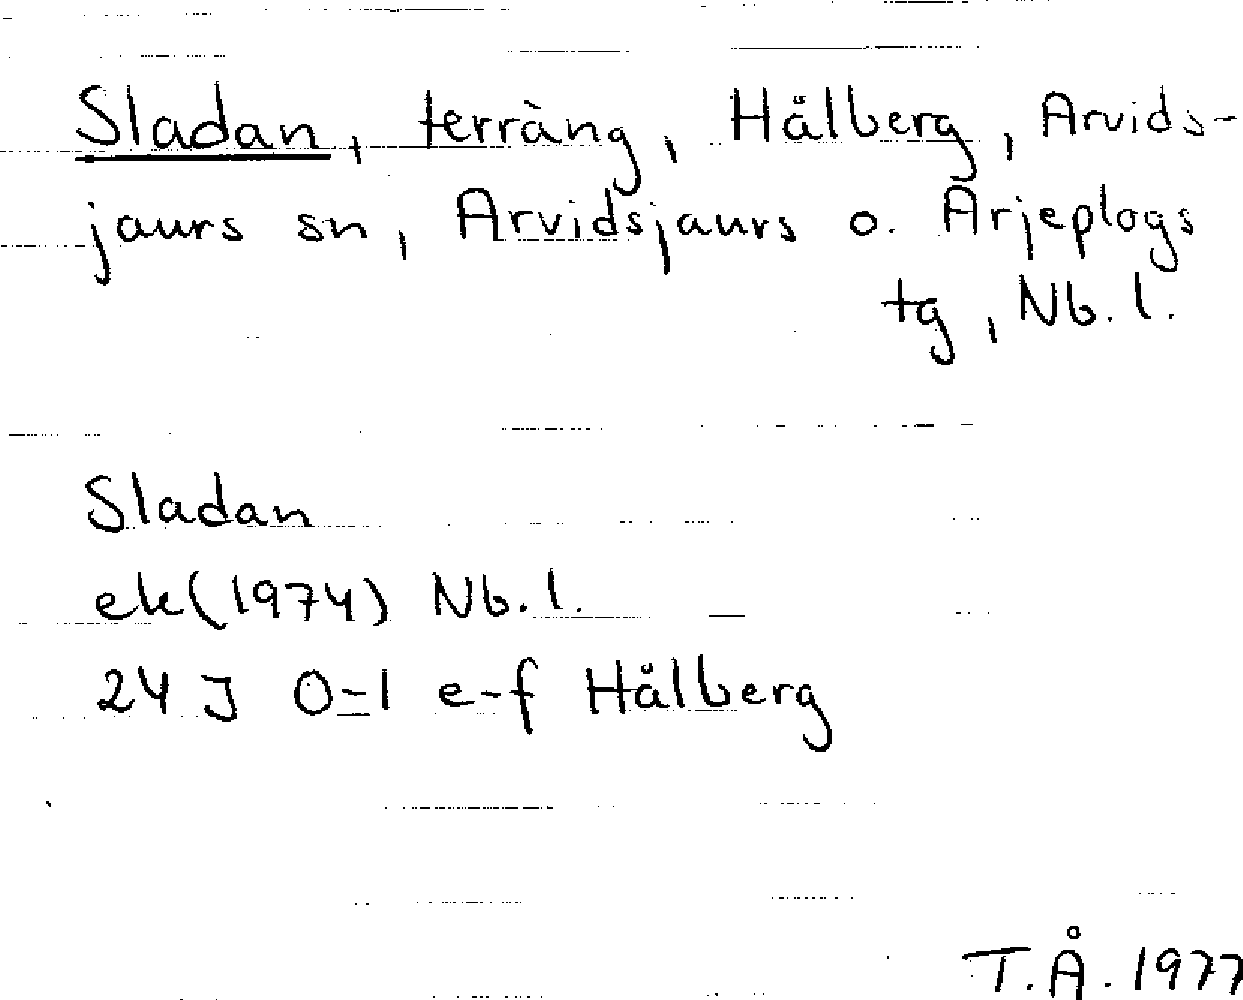 Sladan, terräng, Hålberg, Arvids-
jaurs sn, Arvidsjaurs o. Arjeplogs
tg, Nb. l.
Sladan
ek (1974) Nb. l.
24 J 0-1 e-f Hålberg
T. Å. 1977